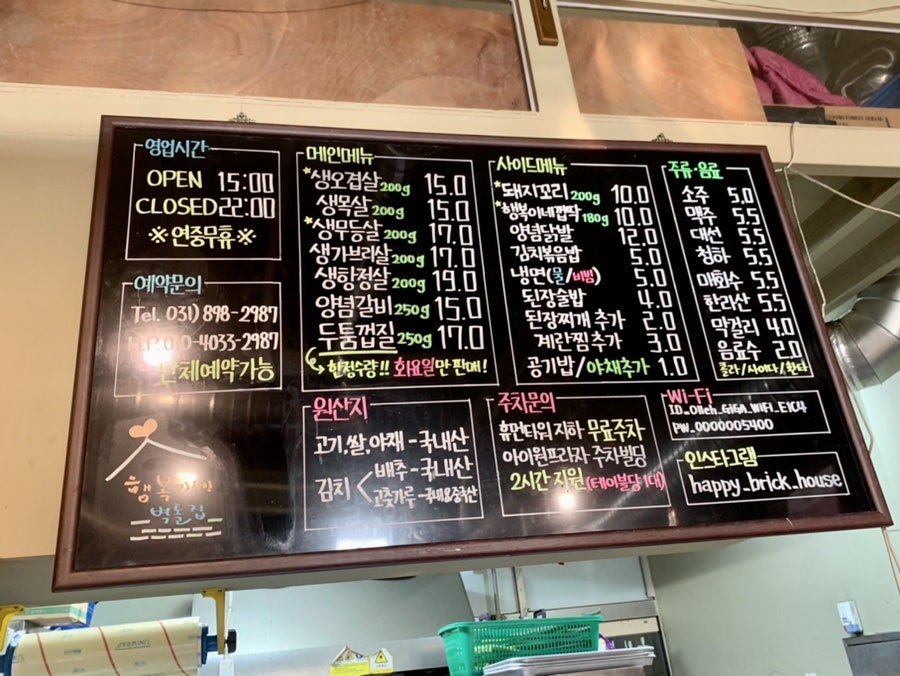 영업시간
OPEN 15:00
CLOSED 22:00
※연중무휴※
예약문의
Tel. 031) 898-2987
H.P. 010-4033-2987
단체예약가능
행복가인
벽돌집
메인메뉴
*생오겹살 200g 15.0
생목살 200g 15.0
*생무등살 200g 17.0
생가브리살 200g 17.0
생항정살 200g 19.0
양념갈비 250g 15.0
두툼껍질 250g 17.0
한정수량!! 화요일만 판매!
원산지
고기,쌀,야채-국내산
김치 < 배추-국내산
고춧가루-국내&중국산
사이드메뉴
*돼지꼬리 200g 10.0
*행복이네껍딱 180g 10.0
양념닭발 12.0
김치볶음밥 5.0
냉면(물/비빔) 5.0
된장술밥 4.0
된장찌개 추가 2.0
계란찜 추가 3.0
공기밥/야채추가 1.0
주차문의
휴먼타워 지하 무료주차
아이원프라자 주차빌딩
2시간 지원 (테이블당 1대)
주류·음료
소주 5.0
맥주 5.5
대선 5.5
청하 5.5
매화수 5.5
한라산 5.5
막걸리 4.0
음료수 2.0
콜라/사이다/환타
Wi-Fi
ID_Olleh_GiGA_WiFi_E1C4
PW_0000005400
인스타그램
happy_brick_house